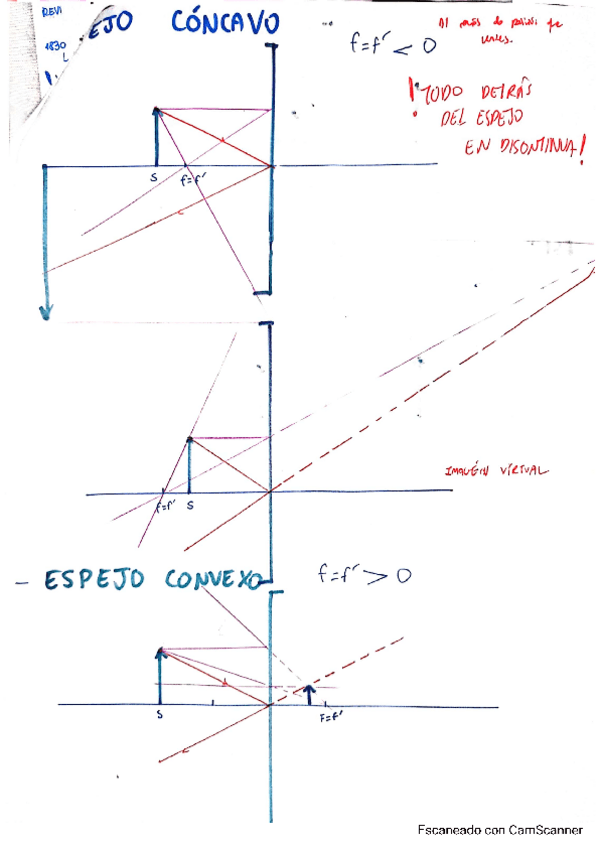 REVI
EJO CÓNCAVO
1830
L
f=f' < 0
Al
¡TODO DETRÁS
DEL ESPEJO
EN DISONTINUA!
S
f=f'
f=f'
S
IMAGÉIN VIRTUAL
- ESPEJO CONVEXO
f=f' > 0
S
F=f'
Escaneado con CamScanner